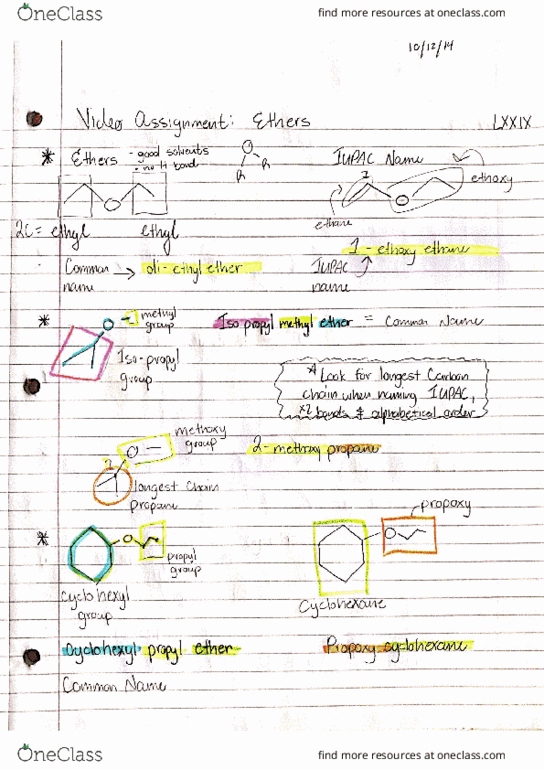 OneClass find more resources at oneclass.com
10/12/14
Video Assignment: Ethers LXXIX
* Ethers - good solvents IUPAC Name
- no H bond
O
R R
ethoxy
O
O
ethane
2C = ethyl ethyl
1 - ethoxy ethane
Common → di-ethyl ether IUPAC
name name
* O methyl
group
Iso propyl methyl ether = Common Name
Iso-propyl
group
* Look for longest Carbon
chain when naming IUPAC,
bonds & alphabetical order
methoxy
group
O
2-methoxy propane
longest chain
propane
propoxy
* O O
propyl
group
cyclohexyl
group
Cyclohexane
Cyclohexyl propyl ether Propoxy cyclohexane
Common Name
OneClass find more resources at oneclass.com